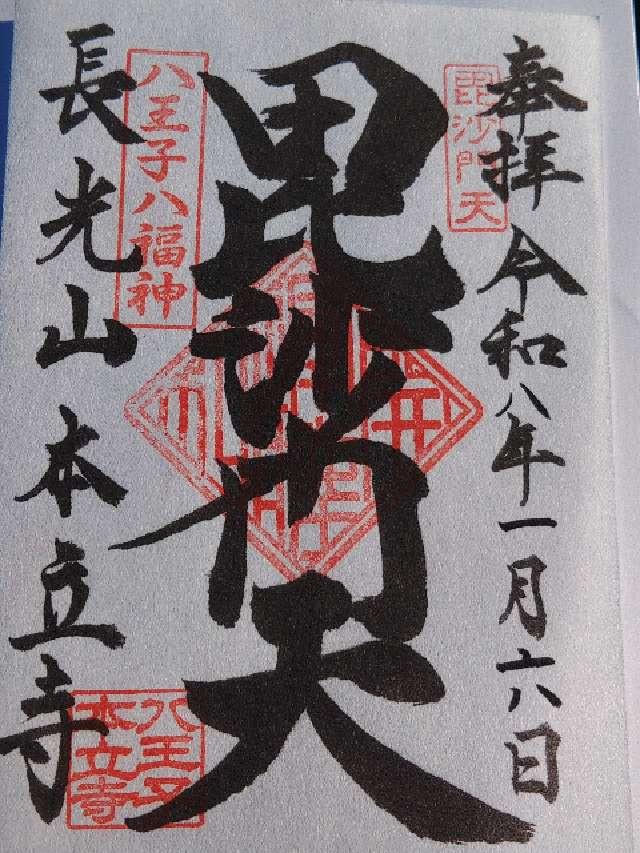 奉拝 令和八年一月六日
毘沙門天
毘沙門天
八王子八福神
長光山 本立寺
八王子
本立寺